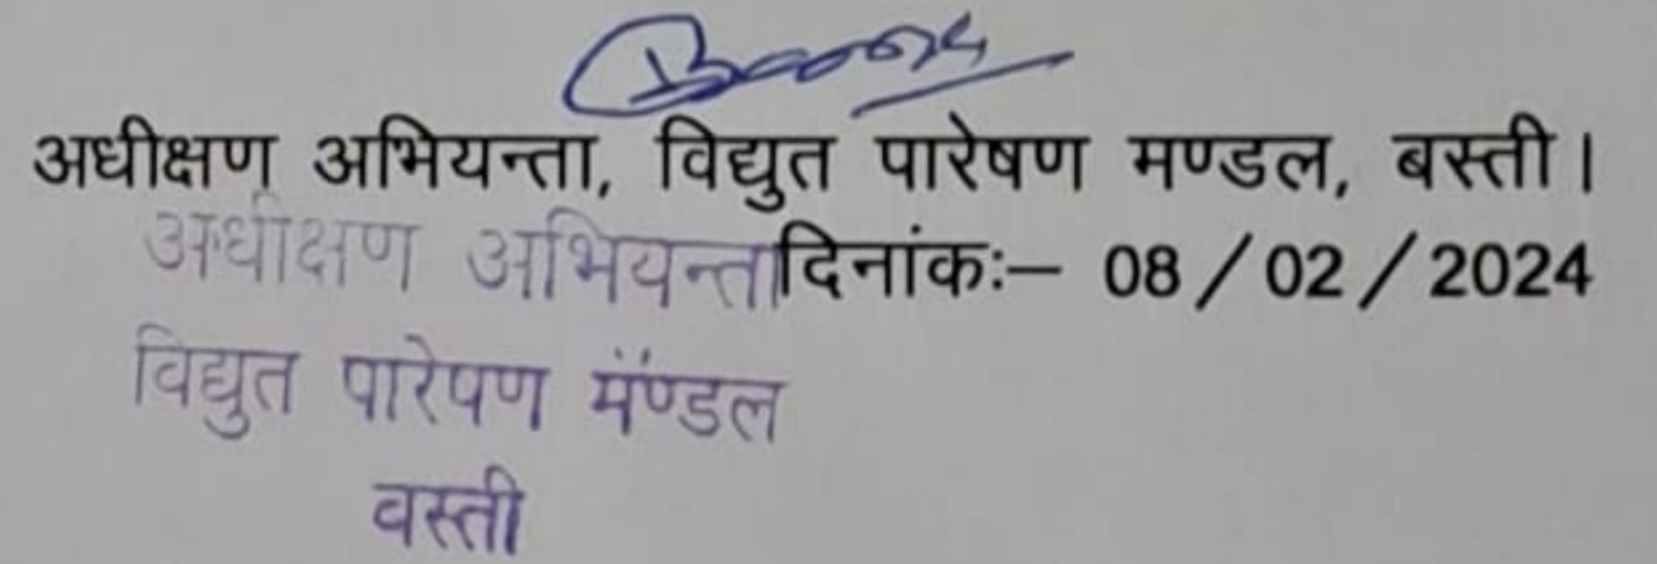 अधीक्षण अभियन्ता, विद्युत पारेषण मण्डल, बस्ती।
अधीक्षण अभियन्ता दिनांकः– 08/02/2024
विद्युत पारेषण मण्डल
वस्ती